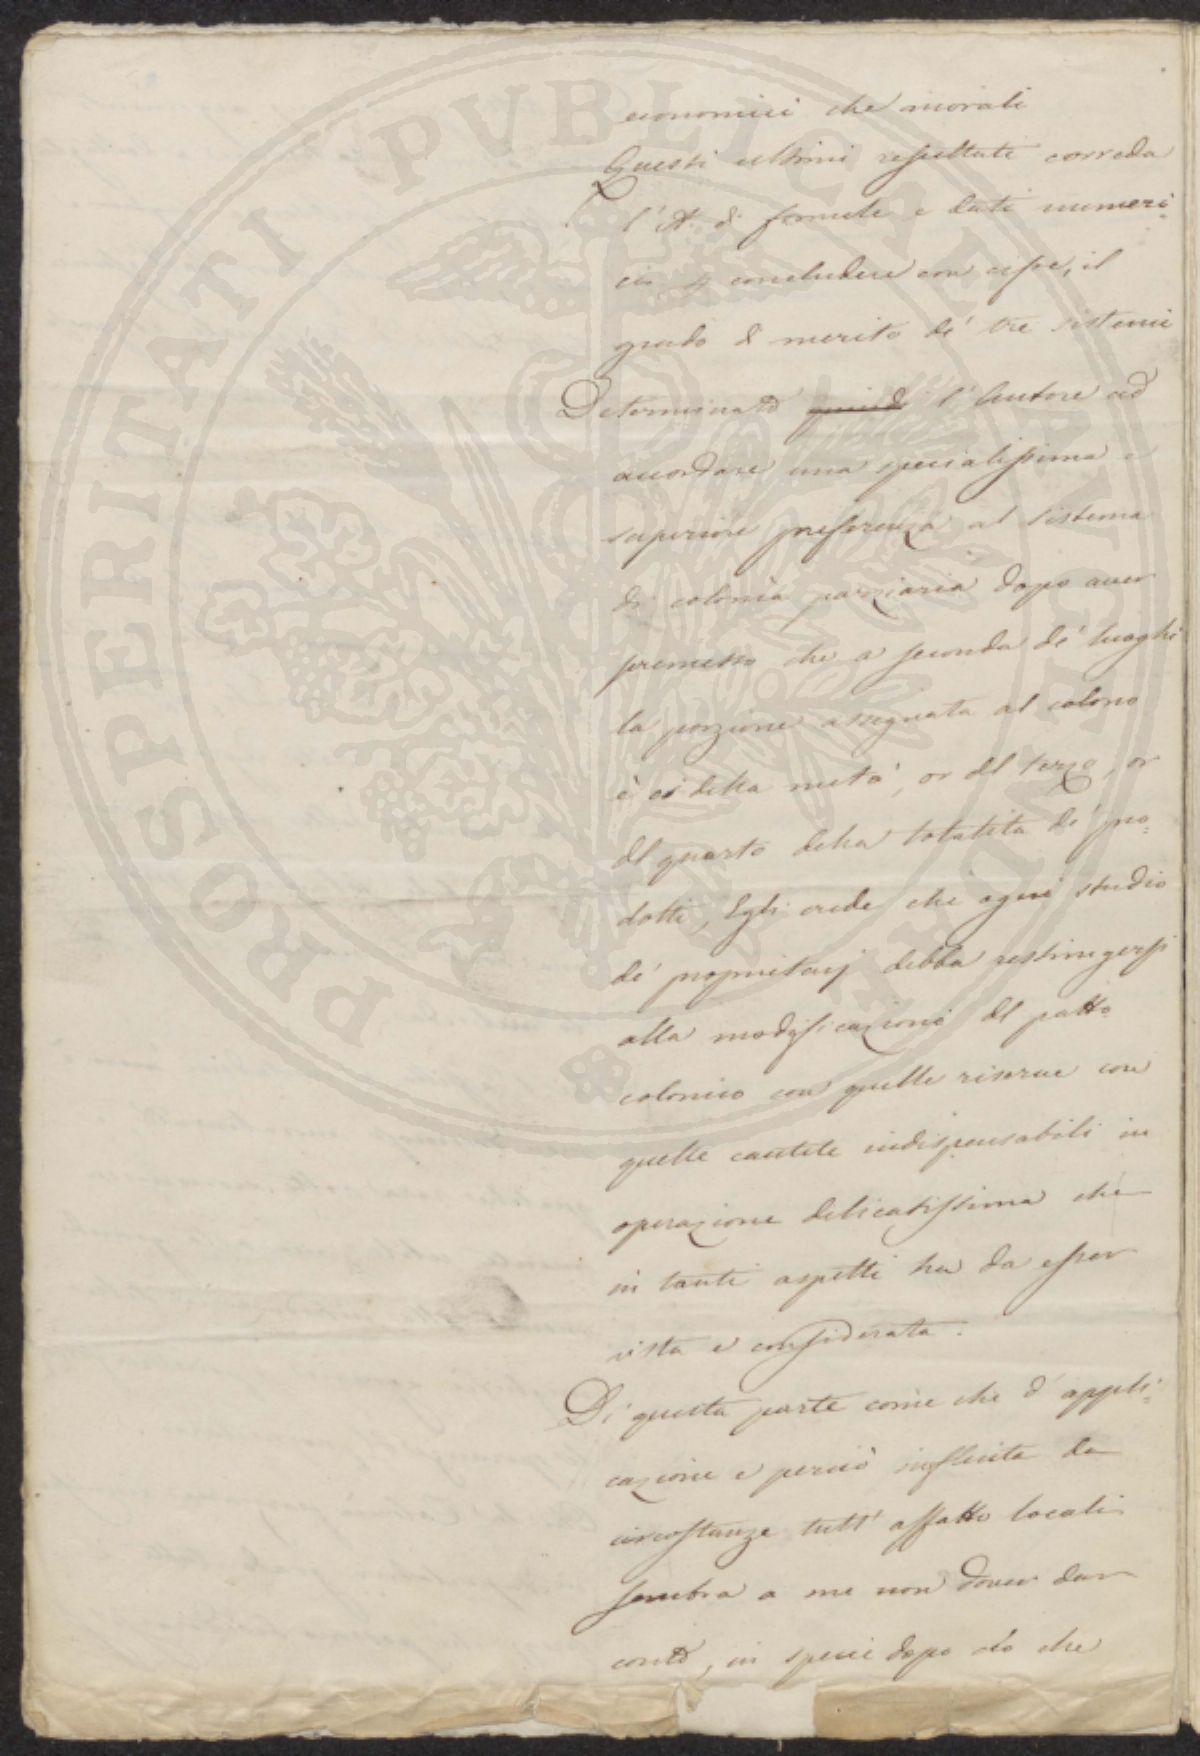 economici che morali
Questi ultimi resultati correda
l'A. di formule e dati numeri-
ci, p concludere con cifre, il
grado di merito de' tre sistemi
Determinato quindi l'Autore ad
accordare una specialissima e
superiore preferenza al sistema
di colonìa parziaria dopo aver
premesso che a seconda de' luoghi
la porzione assegnata al colono
è or della metà, or del terzo, or
del quarto della totalità de' pro-
dotti, Egli crede che ogni studio
de' proprietarj debba restringersi
alla modificazione del patto
colonico con quelle riserve con
quelle cautele indispensabili in
operazione delicatissima che
in tanti aspetti ha da esser
vista e considerata.
Di questa parte come che d'appli-
cazione e perciò influita da
circostanze tutt'affatto locali
sembra a me non dover dar
conto, in specie dopo ciò che
PROSPERITATI PVBLICAE AVGENDAE